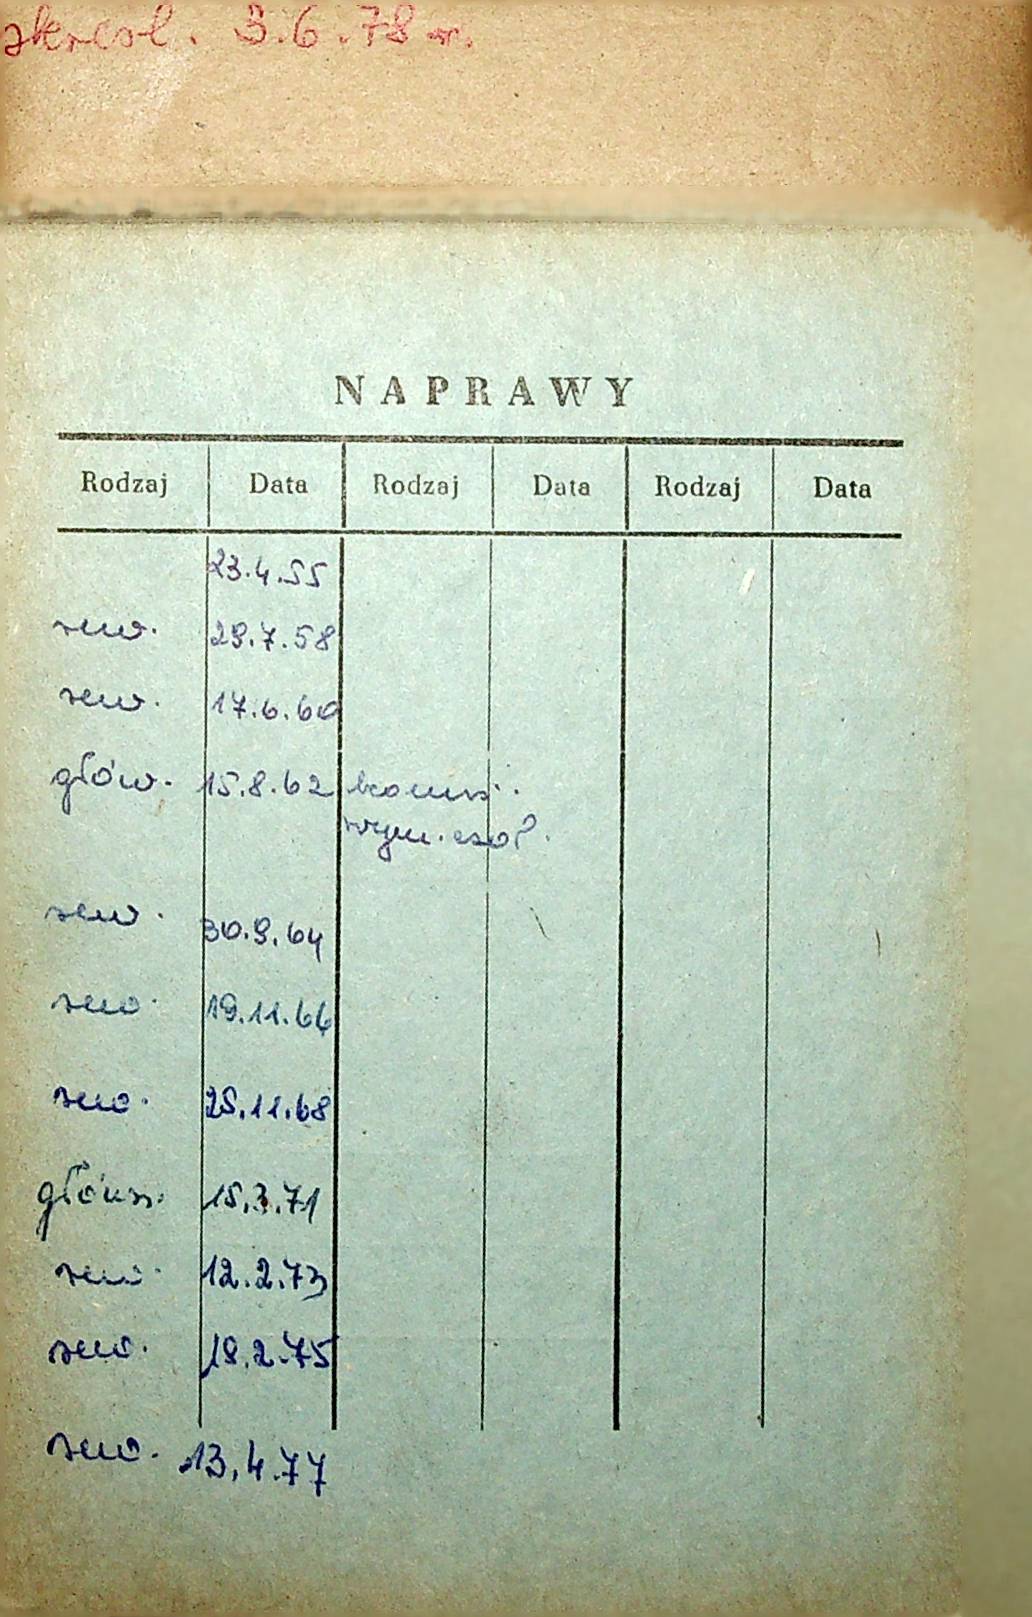 skreśl. 3.6.78 r.
NAPRAWY
Rodzaj Data Rodzaj Data Rodzaj Data
23.4.55
rew. 29.7.58
rew. 17.6.60
głów. 15.8.62
wym. czoł.
rew. 30.9.64
rew. 19.11.66
rew. 25.11.68
główn. 15.3.71
rew. 12.2.73
rew. 19.2.75
rew. 13.4.77